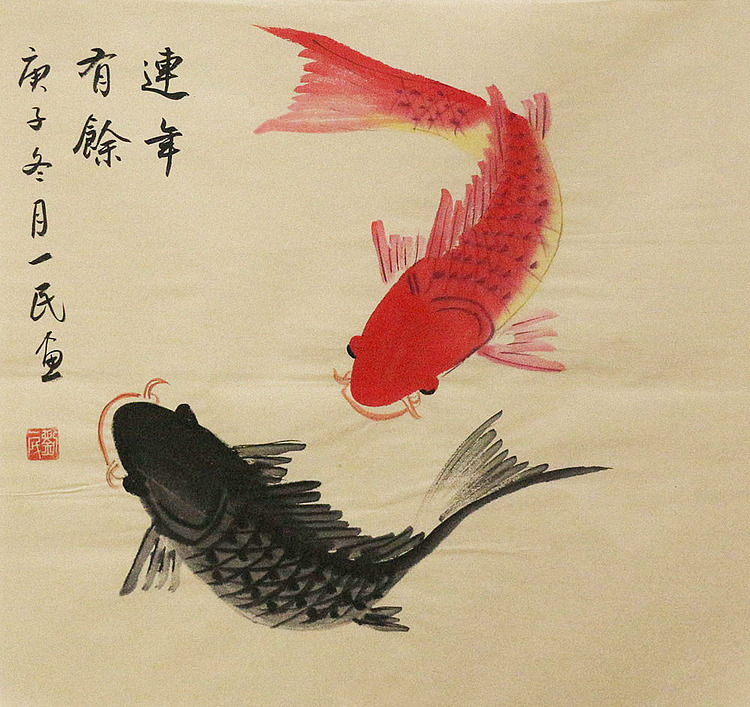 連年
有餘
庚子冬月一民画
劉一民